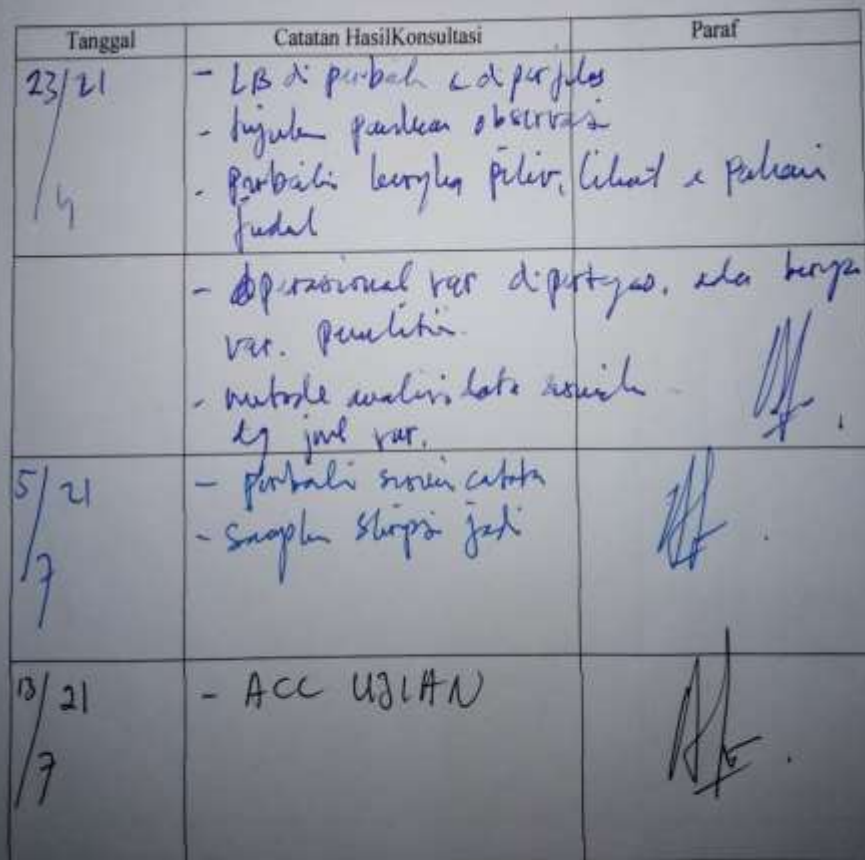 Tanggal Catatan HasilKonsultasi Paraf
23/21
/4
- LB di perbah & diperjelas
- observasi
- kerangka pikir, lihat & pahami
judul
- operasional var dipertegas, ada berapa
var. penelitian
- metode analisis data sesuaik
dg jml var.
5/21
/7
- perbaiki sesuai catata
- skripsi jadi
13/21
/7
- ACC UJIAN